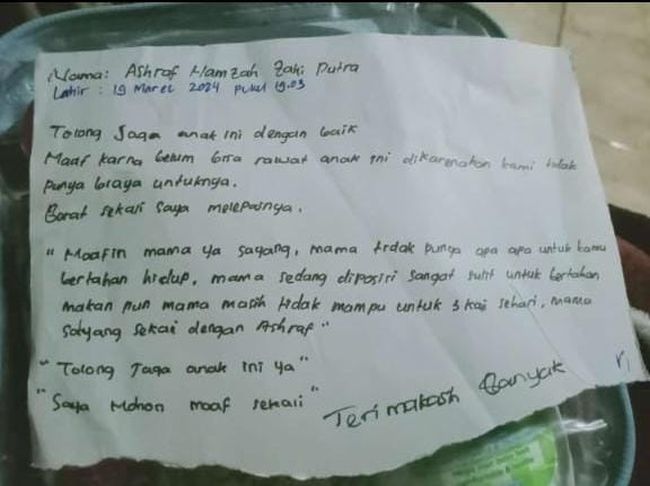 Nama: Ashraf Hamzah Zaki Putra
Lahir : 19 Maret 2024 pukul 19.03
Tolong Jaga anak ini dengan baik
Maaf karna belum bisa rawat anak ini dikarenakan kami tidak
punya biaya untuknya.
Berat sekali saya melepasnya.
"Maafin mama ya sayang, mama tidak punya apa apa untuk kamu
bertahan hidup, mama sedang diposisi sangat sulit untuk bertahan
makan pun mama masih tidak mampu untuk 3 kai sehari, mama
sayang sekai dengan Ashraf"
"Tolong Jaga anak ini ya"
"Saya Mohon maaf sekali"
Terimakasih Banyak